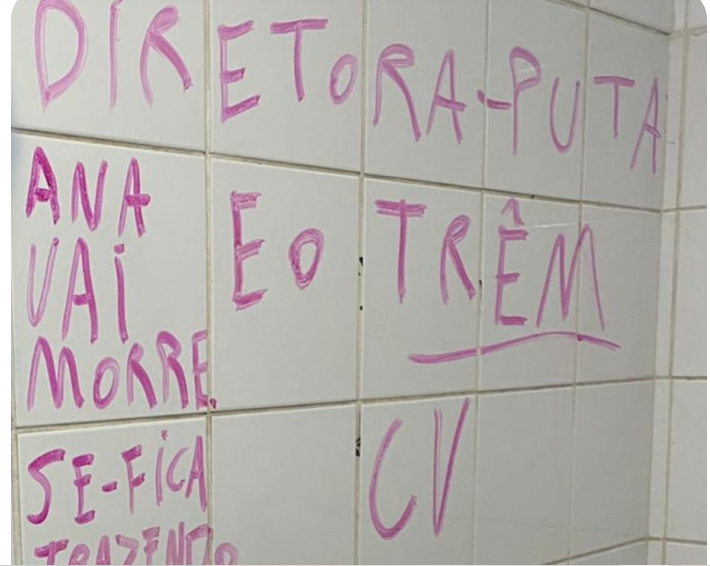 DIRETORA-PUTA
ANA
VAI
MORRE.
SE-FICA
TRAZENDO
EO TRÊM
CV